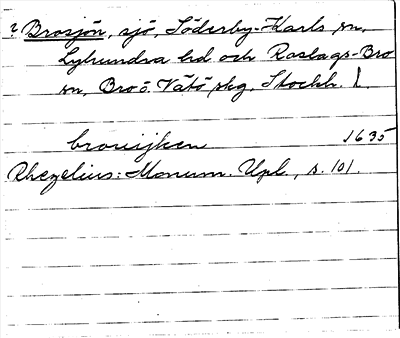 ? Brosjön, sjö, Söderby-Karls sn,
Lyhundra hd. och Roslags-Bro
sn, Bro o. Vätö skg. Stockh. l.
brouijken 1635
Rhezelius: Monum. Upl., s. 101.